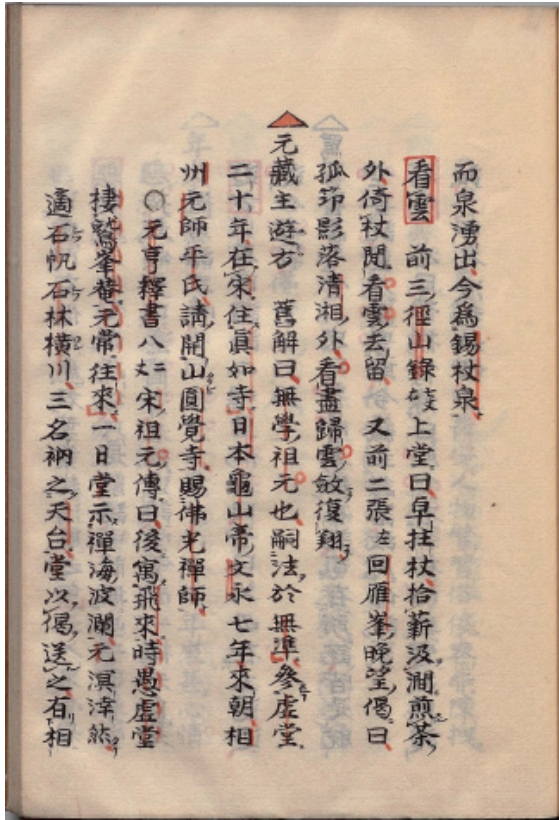 而泉湧出今爲錫杖泉
看雲 前三徑山錄 上堂曰卓拄杖拾薪汲澗煎茶
外倚杖閒看雲去留 又前二張左回雁峯晚望偈曰
孤筇影落清湘外看盡歸雲斂復翔
元藏主遊方 舊解曰無學祖元也嗣法於無準參虛堂
二十年在宋住眞如寺日本龜山帝文永七年來朝相
州元師平氏請開山圓覺寺賜佛光禪師
○元亨釋書八 宋祖元傳曰後寓飛來時愚虛堂
棲鷲峯菴元常往來一日堂示禪海波瀾元溟涬然
適石帆石林橫川三名衲之天台堂以偈送之有相